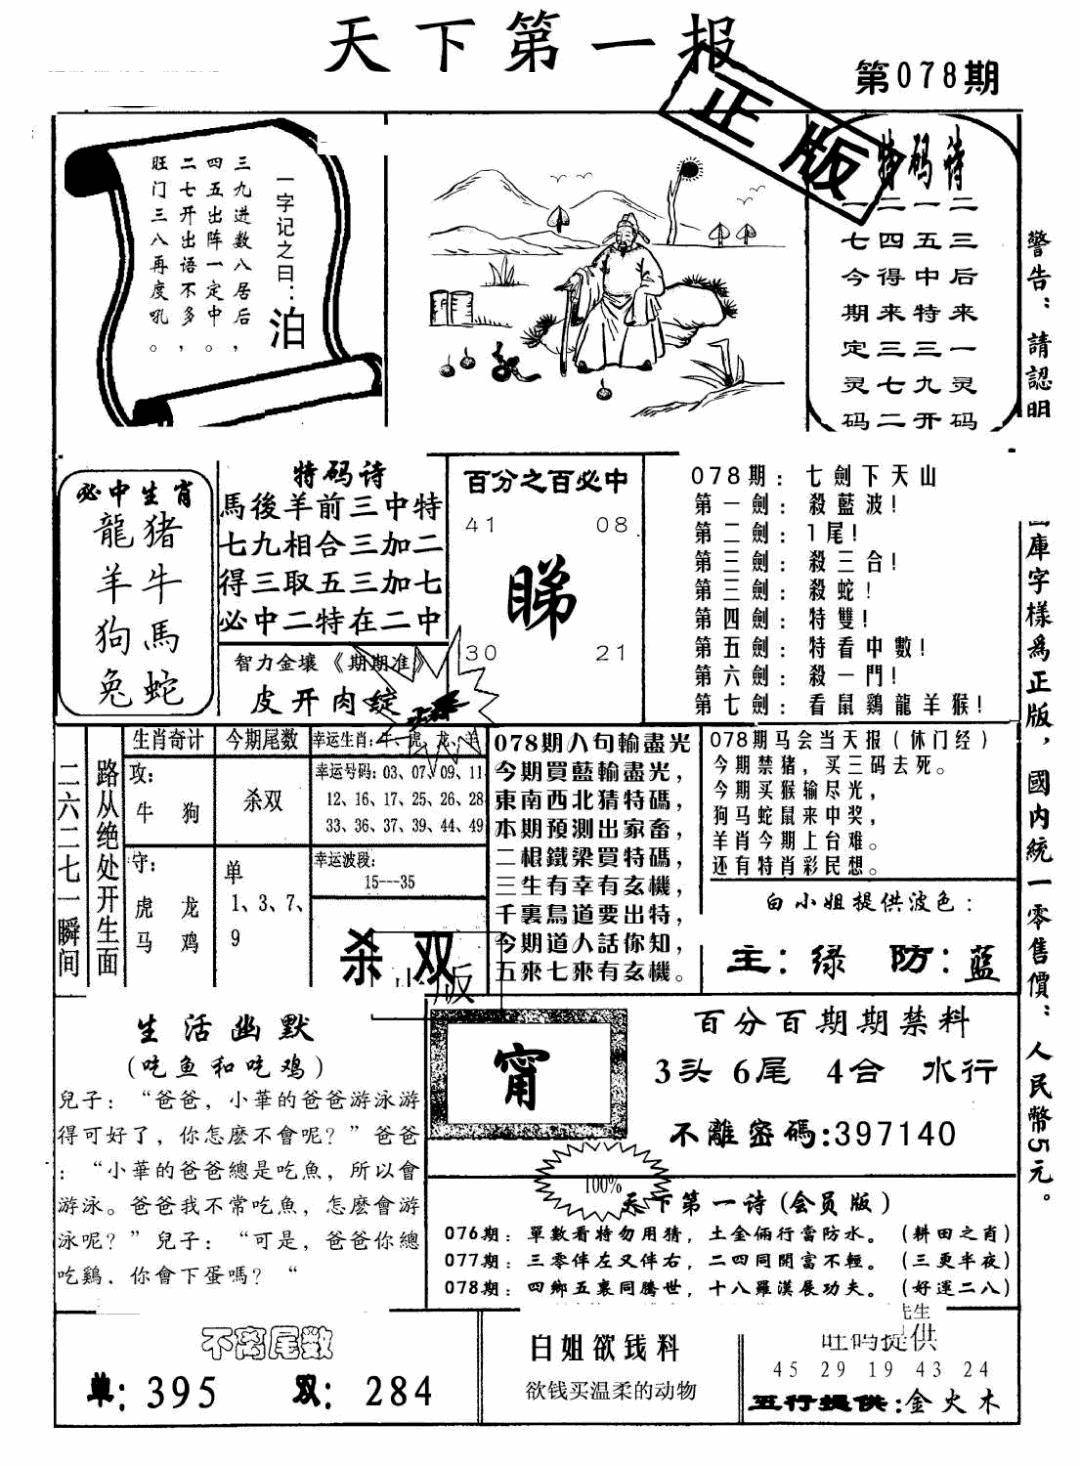 天下第一报
第078期
正版
一字记之曰：泊
三九进数八居后，
四五出阵一定中。
二七开出语不多，
旺门三八再度吼。
特码诗
二三后来一灵码
一五中特三九开
二四得来三七二
一七今期定灵码
警告：請認明
庫字樣為正版，國内統一零售價：人民幣5元。
必中生肖
龍猪
羊牛
狗馬
兔蛇
特码诗
馬後羊前三中特
七九相合三加二
得三取五三加七
必中二特在二中
智力金壤《期期准》
皮开肉綻
百分之百必中
41 08
睇
30 21
078期：七劍下天山
第一劍：殺藍波！
第二劍：1尾！
第三劍：殺三合！
第三劍：殺蛇！
第四劍：特雙！
第五劍：特看中數！
第六劍：殺一門！
第七劍：看鼠鷄龍羊猴！
二六二七一瞬间
路从绝处开生面
生肖奇计
攻：
牛 狗
守：
虎 龙
马 鸡
今期尾数
杀双
单
1、3、7、
9
幸运生肖：牛、虎、龙、羊
幸运号码：03、07、09、11
12、16、17、25、26、28
33、36、37、39、44、49
幸运波段：
15---35
杀双
版
078期八句輸盡光
今期買藍輸盡光，
東南西北猜特碼，
本期預測出家畜，
二根鐵梁買特碼，
三生有幸有玄機，
千裏鳥道要出特，
今期道人話你知，
五來七來有玄機。
078期马会当天报（休门经）
今期禁猪，买三码去死。
今期买猴输尽光，
狗马蛇鼠来中奖，
羊肖今期上台难。
还有特肖彩民想。
白小姐提供波色：
主：绿 防：蓝
生活幽默
（吃鱼和吃鸡）
兒子：“爸爸，小華的爸爸游泳游
得可好了，你怎麽不會呢？”爸爸
：“小華的爸爸總是吃魚，所以會
游泳。爸爸我不常吃魚，怎麽會游
泳呢？”兒子：“可是，爸爸你總
吃鷄．你會下蛋嗎？“
甯
百分百期期禁料
3头 6尾 4合 水行
不離密碼：397140
100%
天下第一诗（会员版）
076期：單數看特勿用猜，土金倆行當防水。（耕田之肖）
077期：三零伴左又伴右，二四同開富不輕。（三更半夜）
078期：四鄉五裏同騰世，十八羅漢展功夫。（好運二八）
不离尾数
单：395 双：284
白姐欲钱料
欲钱买温柔的动物
先生
旺码提供
45 29 19 43 24
五行提供：金火木